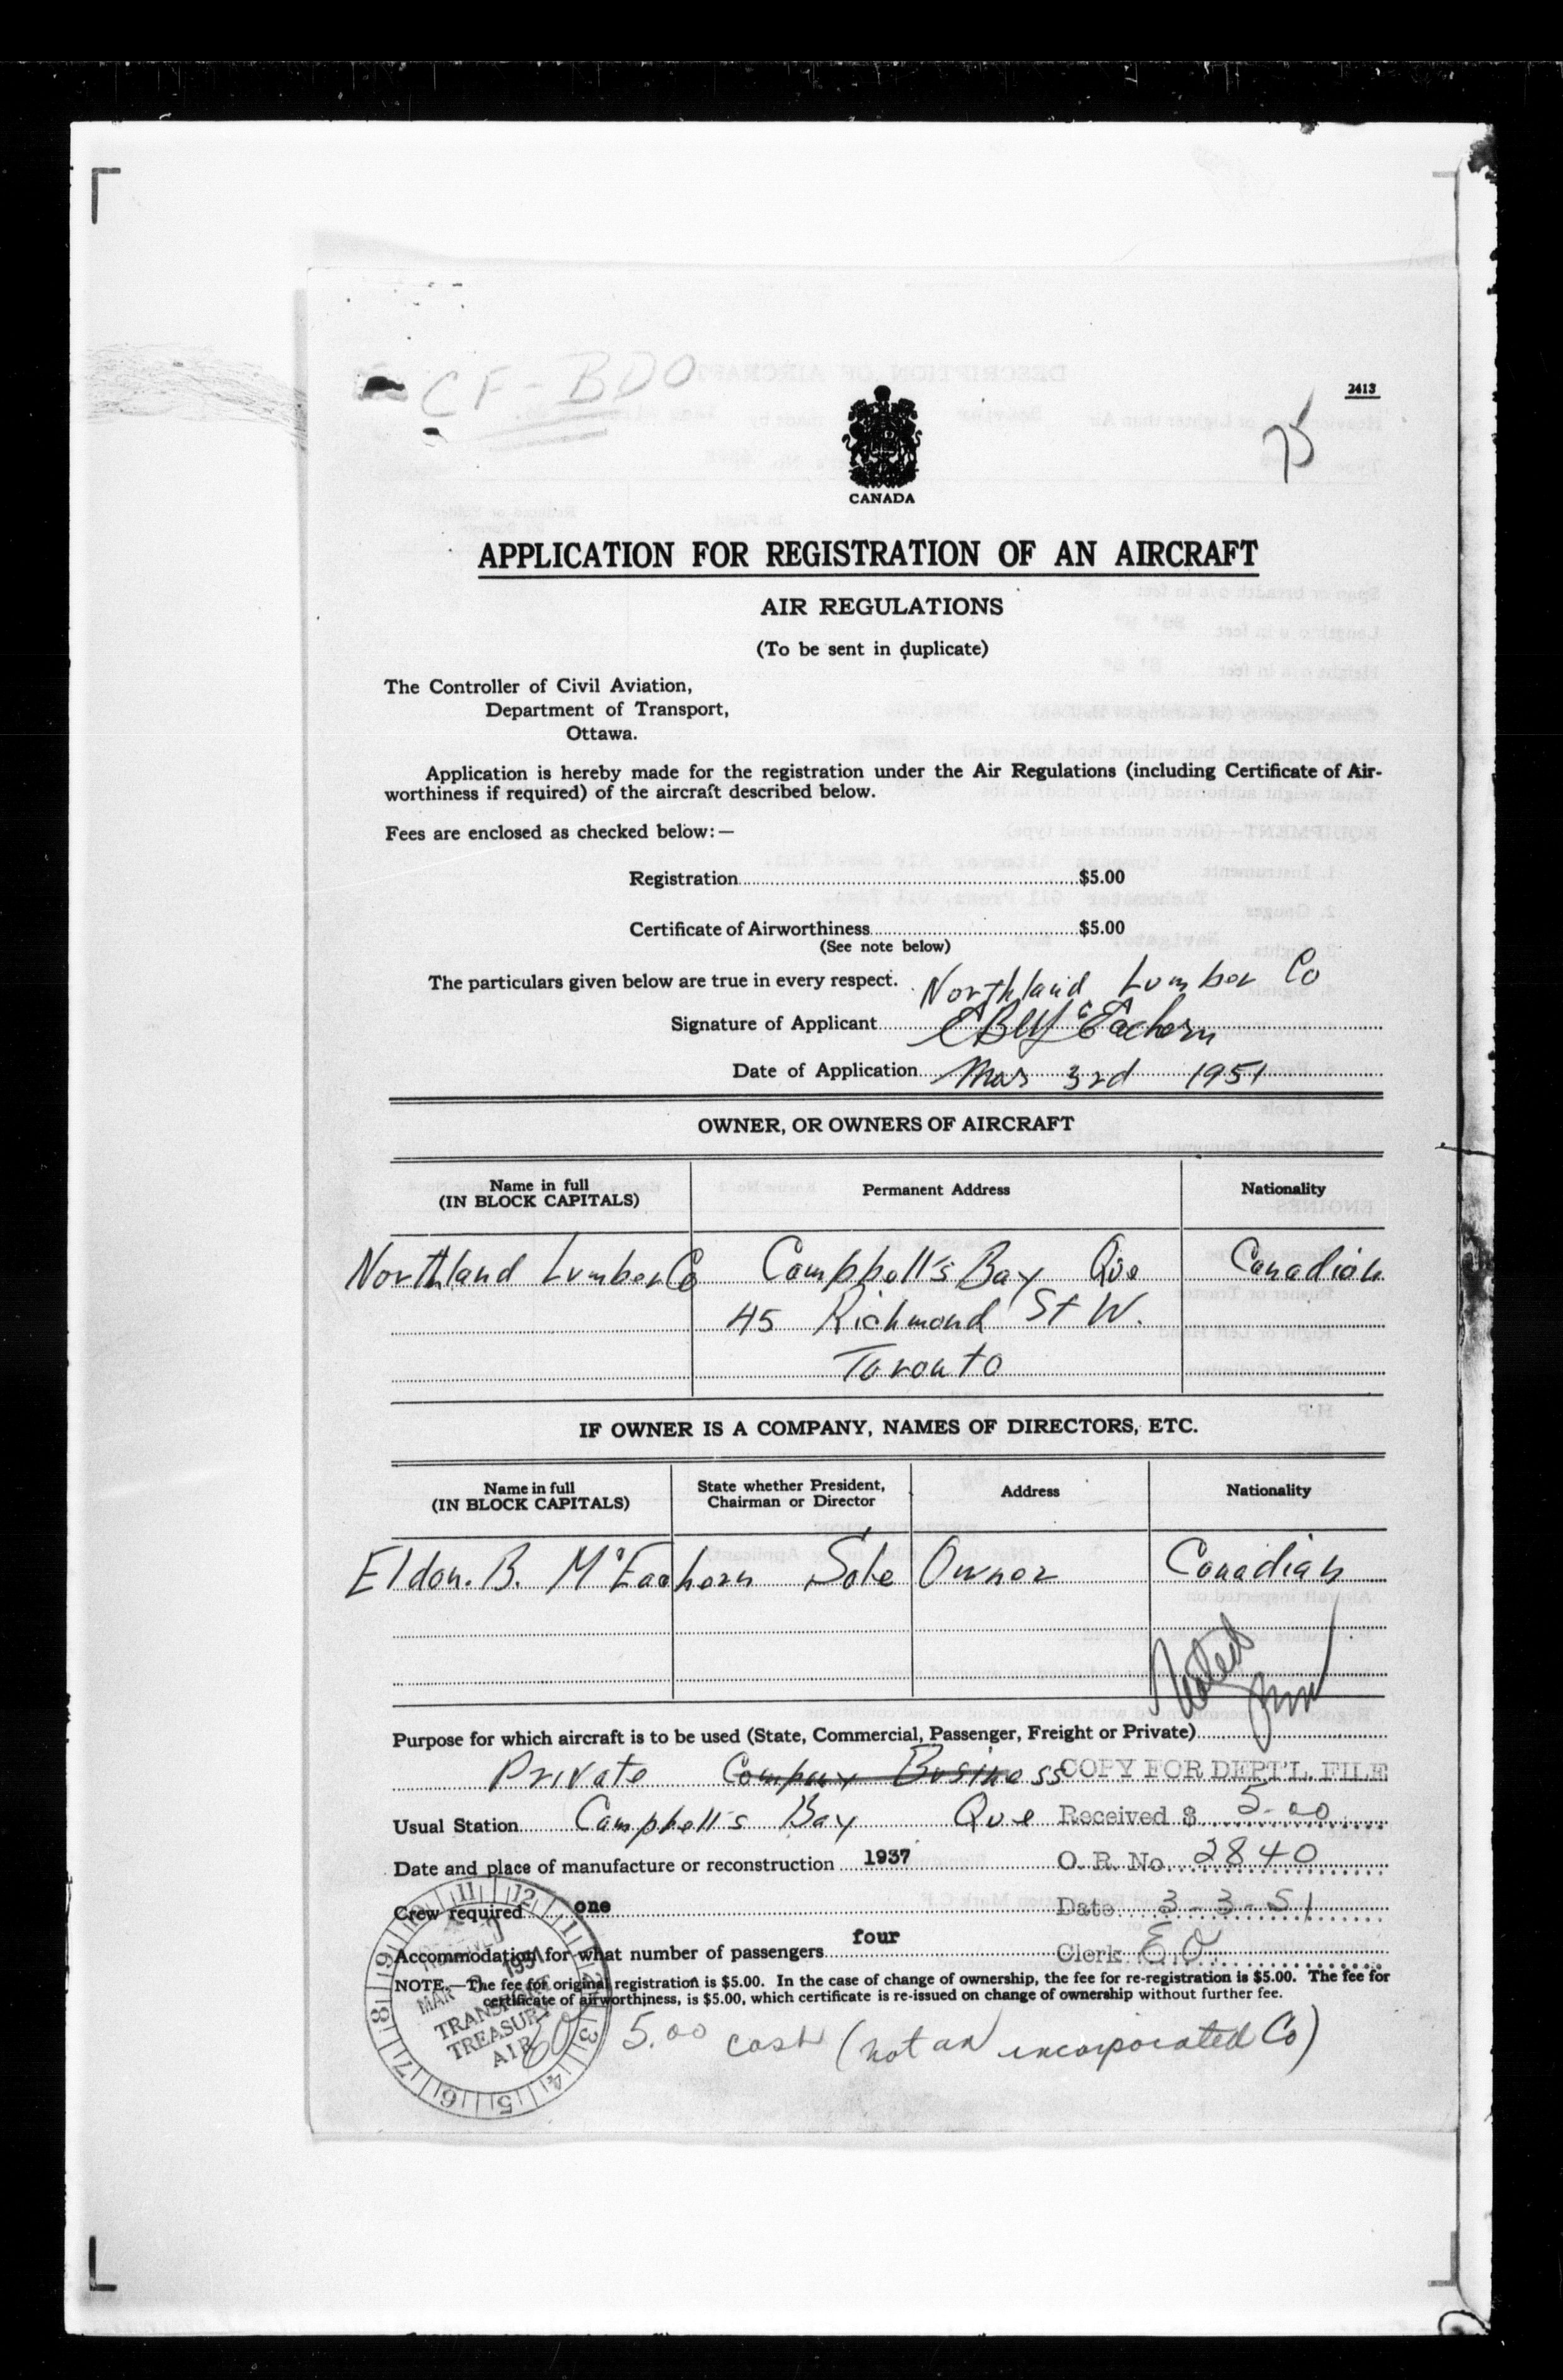 CF-BDO
2413
75
CANADA
APPLICATION FOR REGISTRATION OF AN AIRCRAFT
AIR REGULATIONS
(To be sent in duplicate)
The Controller of Civil Aviation,
Department of Transport,
Ottawa.
Application is hereby made for the registration under the Air Regulations (including Certificate of Air-
worthiness if required) of the aircraft described below.
Fees are enclosed as checked below:—
Registration $5.00
Certificate of Airworthiness $5.00
(See note below)
The particulars given below are true in every respect. Northland Lumber Co
Signature of Applicant E B McEachern
Date of Application Mar 3rd 1951
OWNER, OR OWNERS OF AIRCRAFT
Name in full Permanent Address Nationality
(IN BLOCK CAPITALS)
Northland Lumber Co Campbell's Bay Que Canadian
45 Richmond St W.
Toronto
IF OWNER IS A COMPANY, NAMES OF DIRECTORS, ETC.
Name in full State whether President, Address Nationality
(IN BLOCK CAPITALS) Chairman or Director
Eldon. B. McEachern Sole Owner Canadian
Noted
Purpose for which aircraft is to be used (State, Commercial, Passenger, Freight or Private)
Private Company Business COPY FOR DEPT'L. FILE
Usual Station Campbell's Bay Que Received $ 5.00
Date and place of manufacture or reconstruction 1937 O. R. No. 2840
Crew required one Date 3-3-51
Accommodation for what number of passengers four Clerk E O
NOTE.—The fee for original registration is $5.00. In the case of change of ownership, the fee for re-registration is $5.00. The fee for
certificate of airworthiness, is $5.00, which certificate is re-issued on change of ownership without further fee.
MAR 1951
TRANSPORT
TREASURY
AIR
5.00 cash (not an incorporated Co)